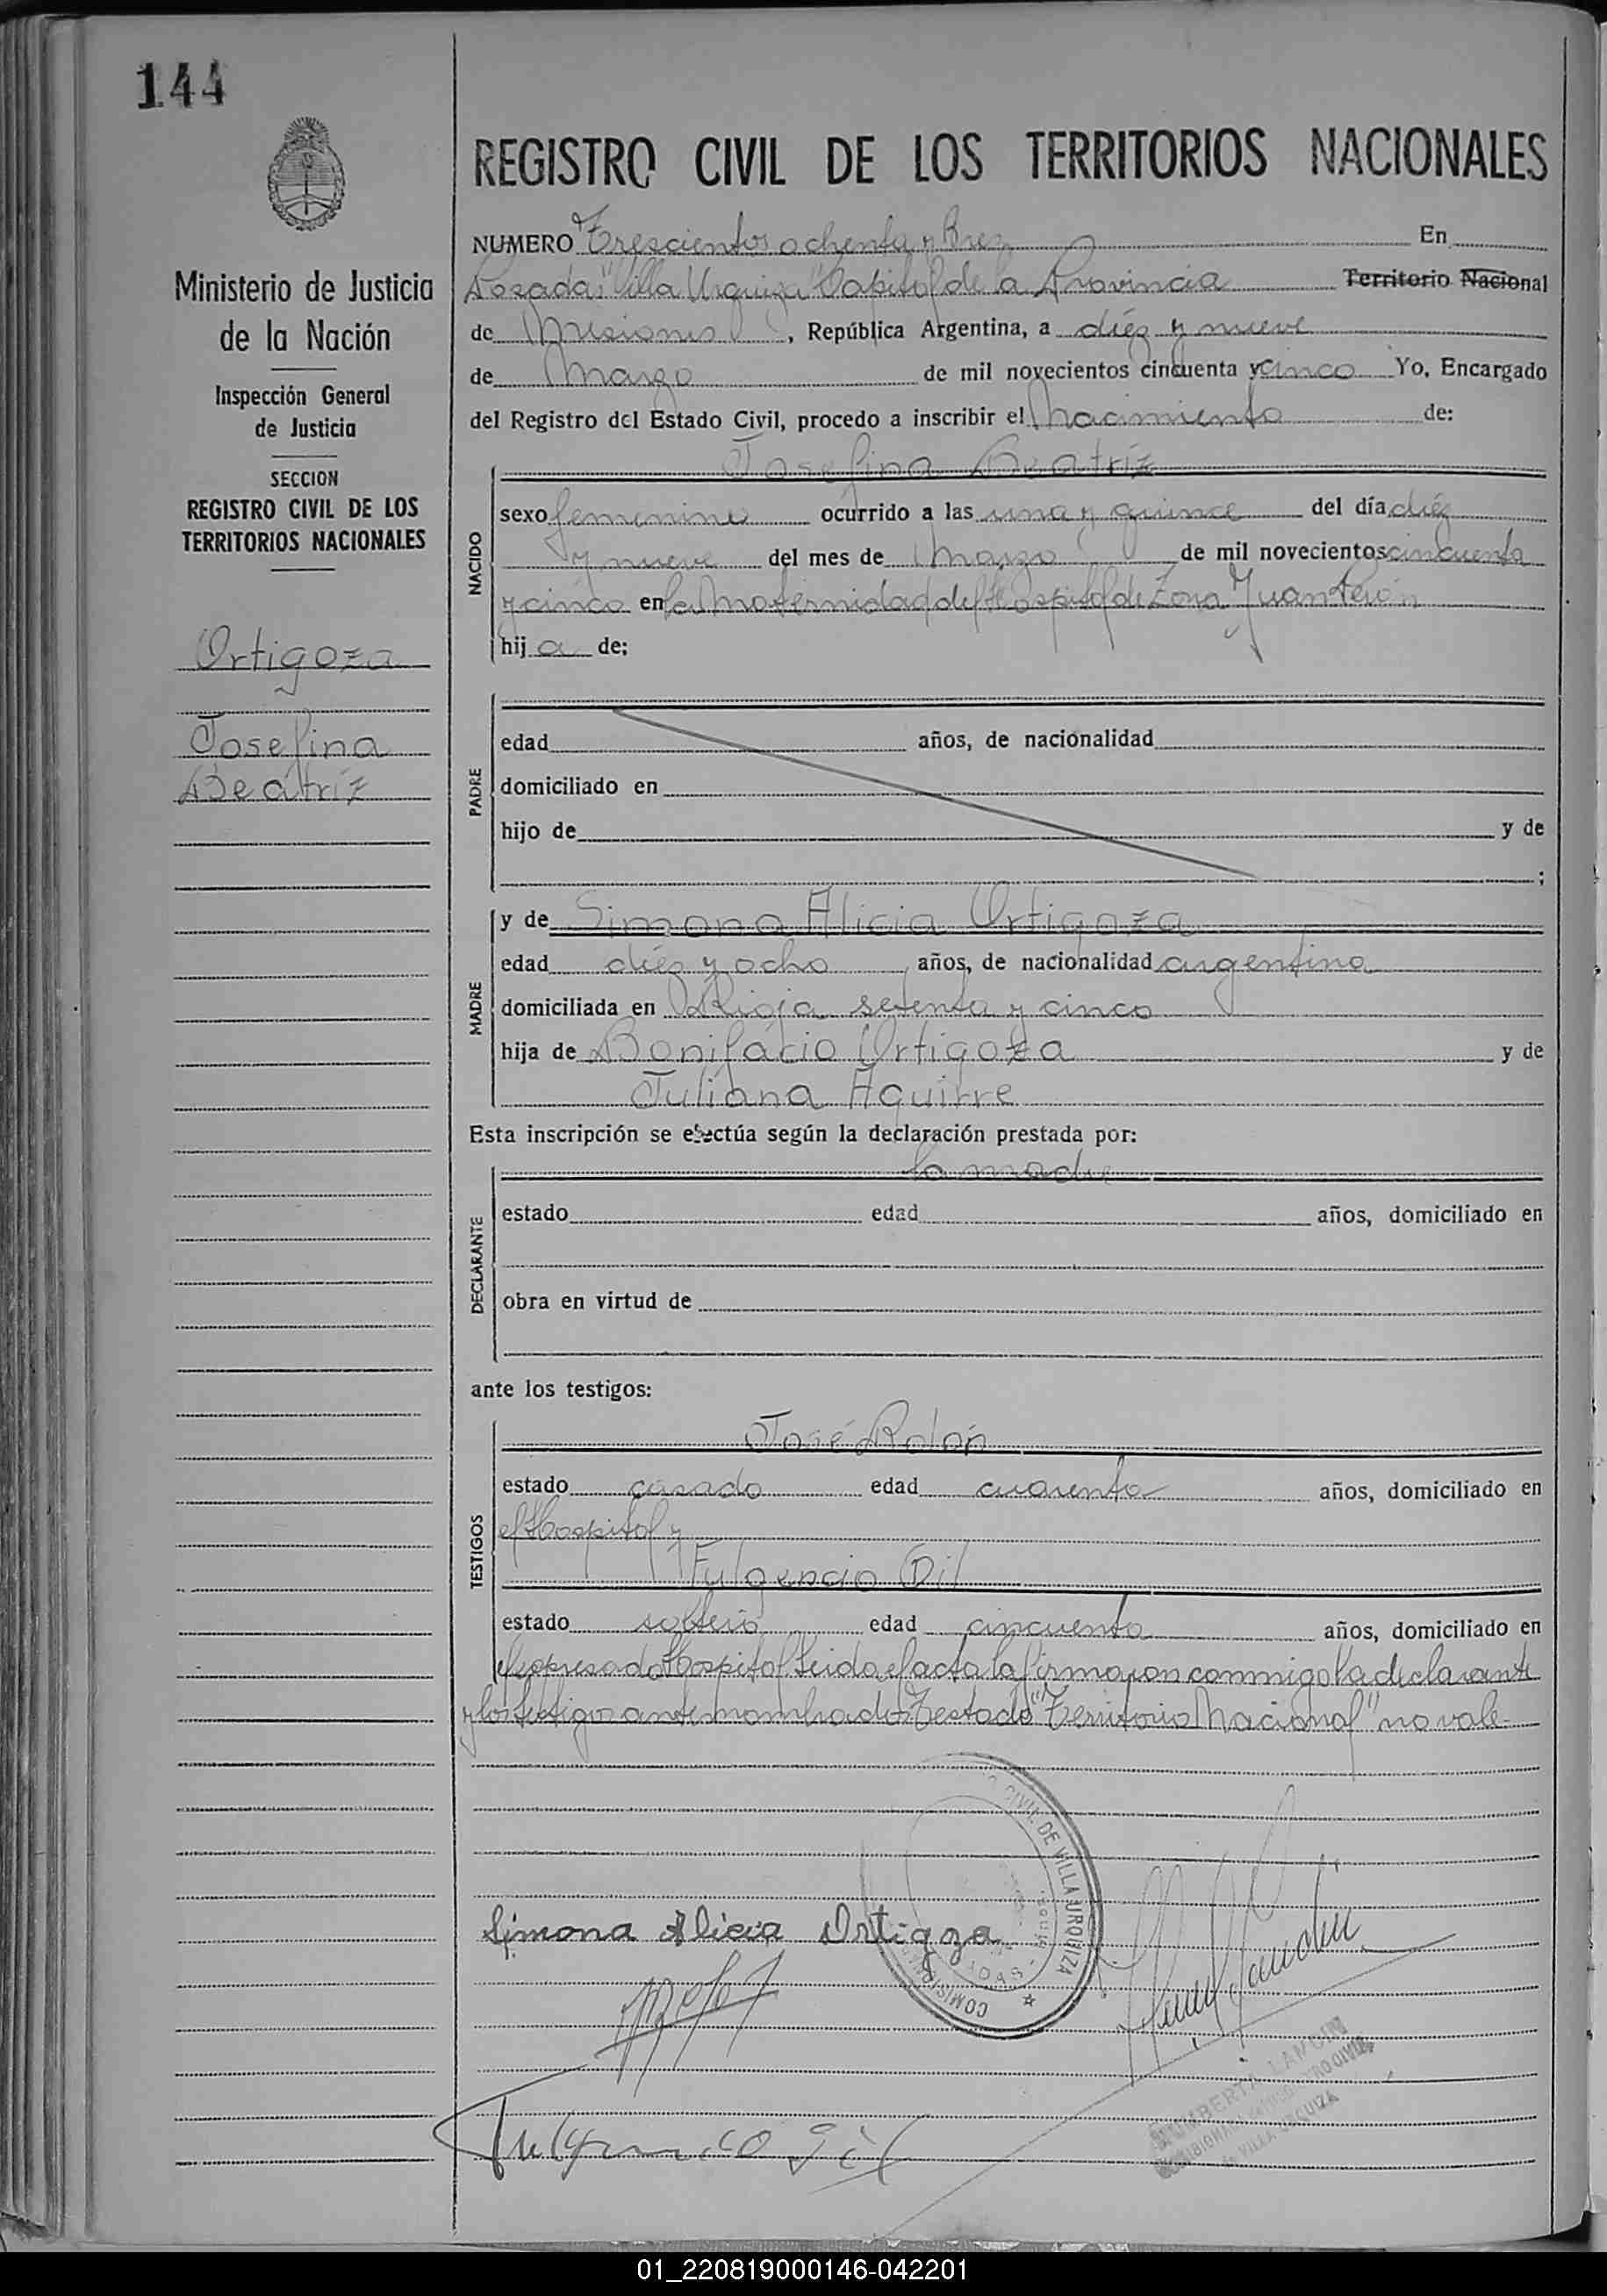 144
REGISTRO CIVIL DE LOS TERRITORIOS NACIONALES
Ministerio de Justicia
de la Nación
Inspección General
de Justicia
SECCION
REGISTRO CIVIL DE LOS
TERRITORIOS NACIONALES
Ortigoza
Josefina
Beatriz
NUMERO Trescientos ochenta y tres En
Posadas "Villa Urquiza" Capital de la Provincia Territorio Nacional
de Misiones, República Argentina, a diéz y nueve
de Marzo de mil novecientos cincuenta y cinco Yo, Encargado
del Registro del Estado Civil, procedo a inscribir el Nacimiento de:
NACIDO
Josefina Beatríz
sexo femenino ocurrido a las una y quince del día diéz
y nueve del mes de Marzo de mil novecientos cincuenta
y cinco en la Maternidad del Hospital de Zona Juan Perón
hija de;
PADRE
edad años, de nacionalidad
domiciliado en
hijo de y de
;
MADRE
y de Simona Alicia Ortigoza
edad diés y ocho años, de nacionalidad argentina
domiciliada en Rioja setenta y cinco
hija de Bonifacio Ortigoza y de
Juliana Aguirre
Esta inscripción se efectúa según la declaración prestada por:
DECLARANTE
la madre
estado edad años, domiciliado en
obra en virtud de
ante los testigos:
TESTIGOS
José Rolón
estado casado edad cuarenta años, domiciliado en
el Hospital y
Fulgencio Gil
estado soltero edad cincuenta años, domiciliado en
el expresado Hospital Leida el acta la firmaron conmigo la declarante
y los testigos antes nombrados Testado "Territorio Nacional" no vale
CIVIL DE VILLA URQUIZA
Simona Alicia Ortigoza
Fulgencio Gil
LANDIN
VILLA URQUIZA
01_220819000146-042201